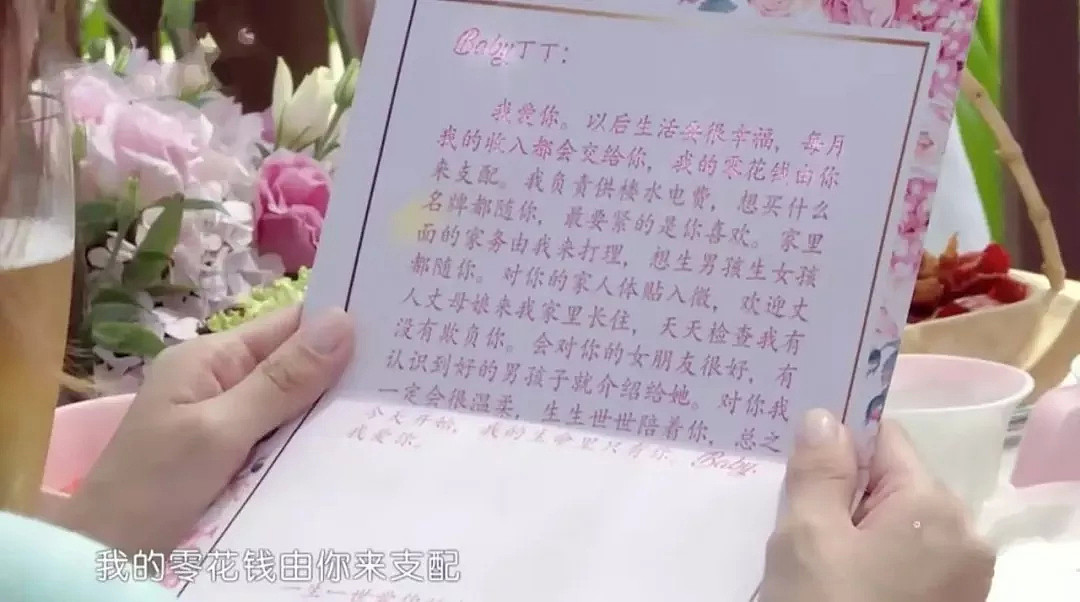 Baby丁丁：
我爱你。以后生活安很幸福，每月
我的收入都会交给你，我的零花钱由你
来支配。我负责供楼水电费，想买什么
名牌都随你，最要紧的是你喜欢。家里
面的家务由我来打理，想生男孩生女孩
都随你。对你的家人体贴入微，欢迎丈
人丈母娘来我家里长住，天天检查我有
没有欺负你。会对你的女朋友很好，有
认识到好的男孩子就介绍给她。对你我
一定会很温柔，生生世世陪着你，总之
今天开始，我的生命里只有你。Baby.
我爱你。
我的零花钱由你来支配
一生一世爱你